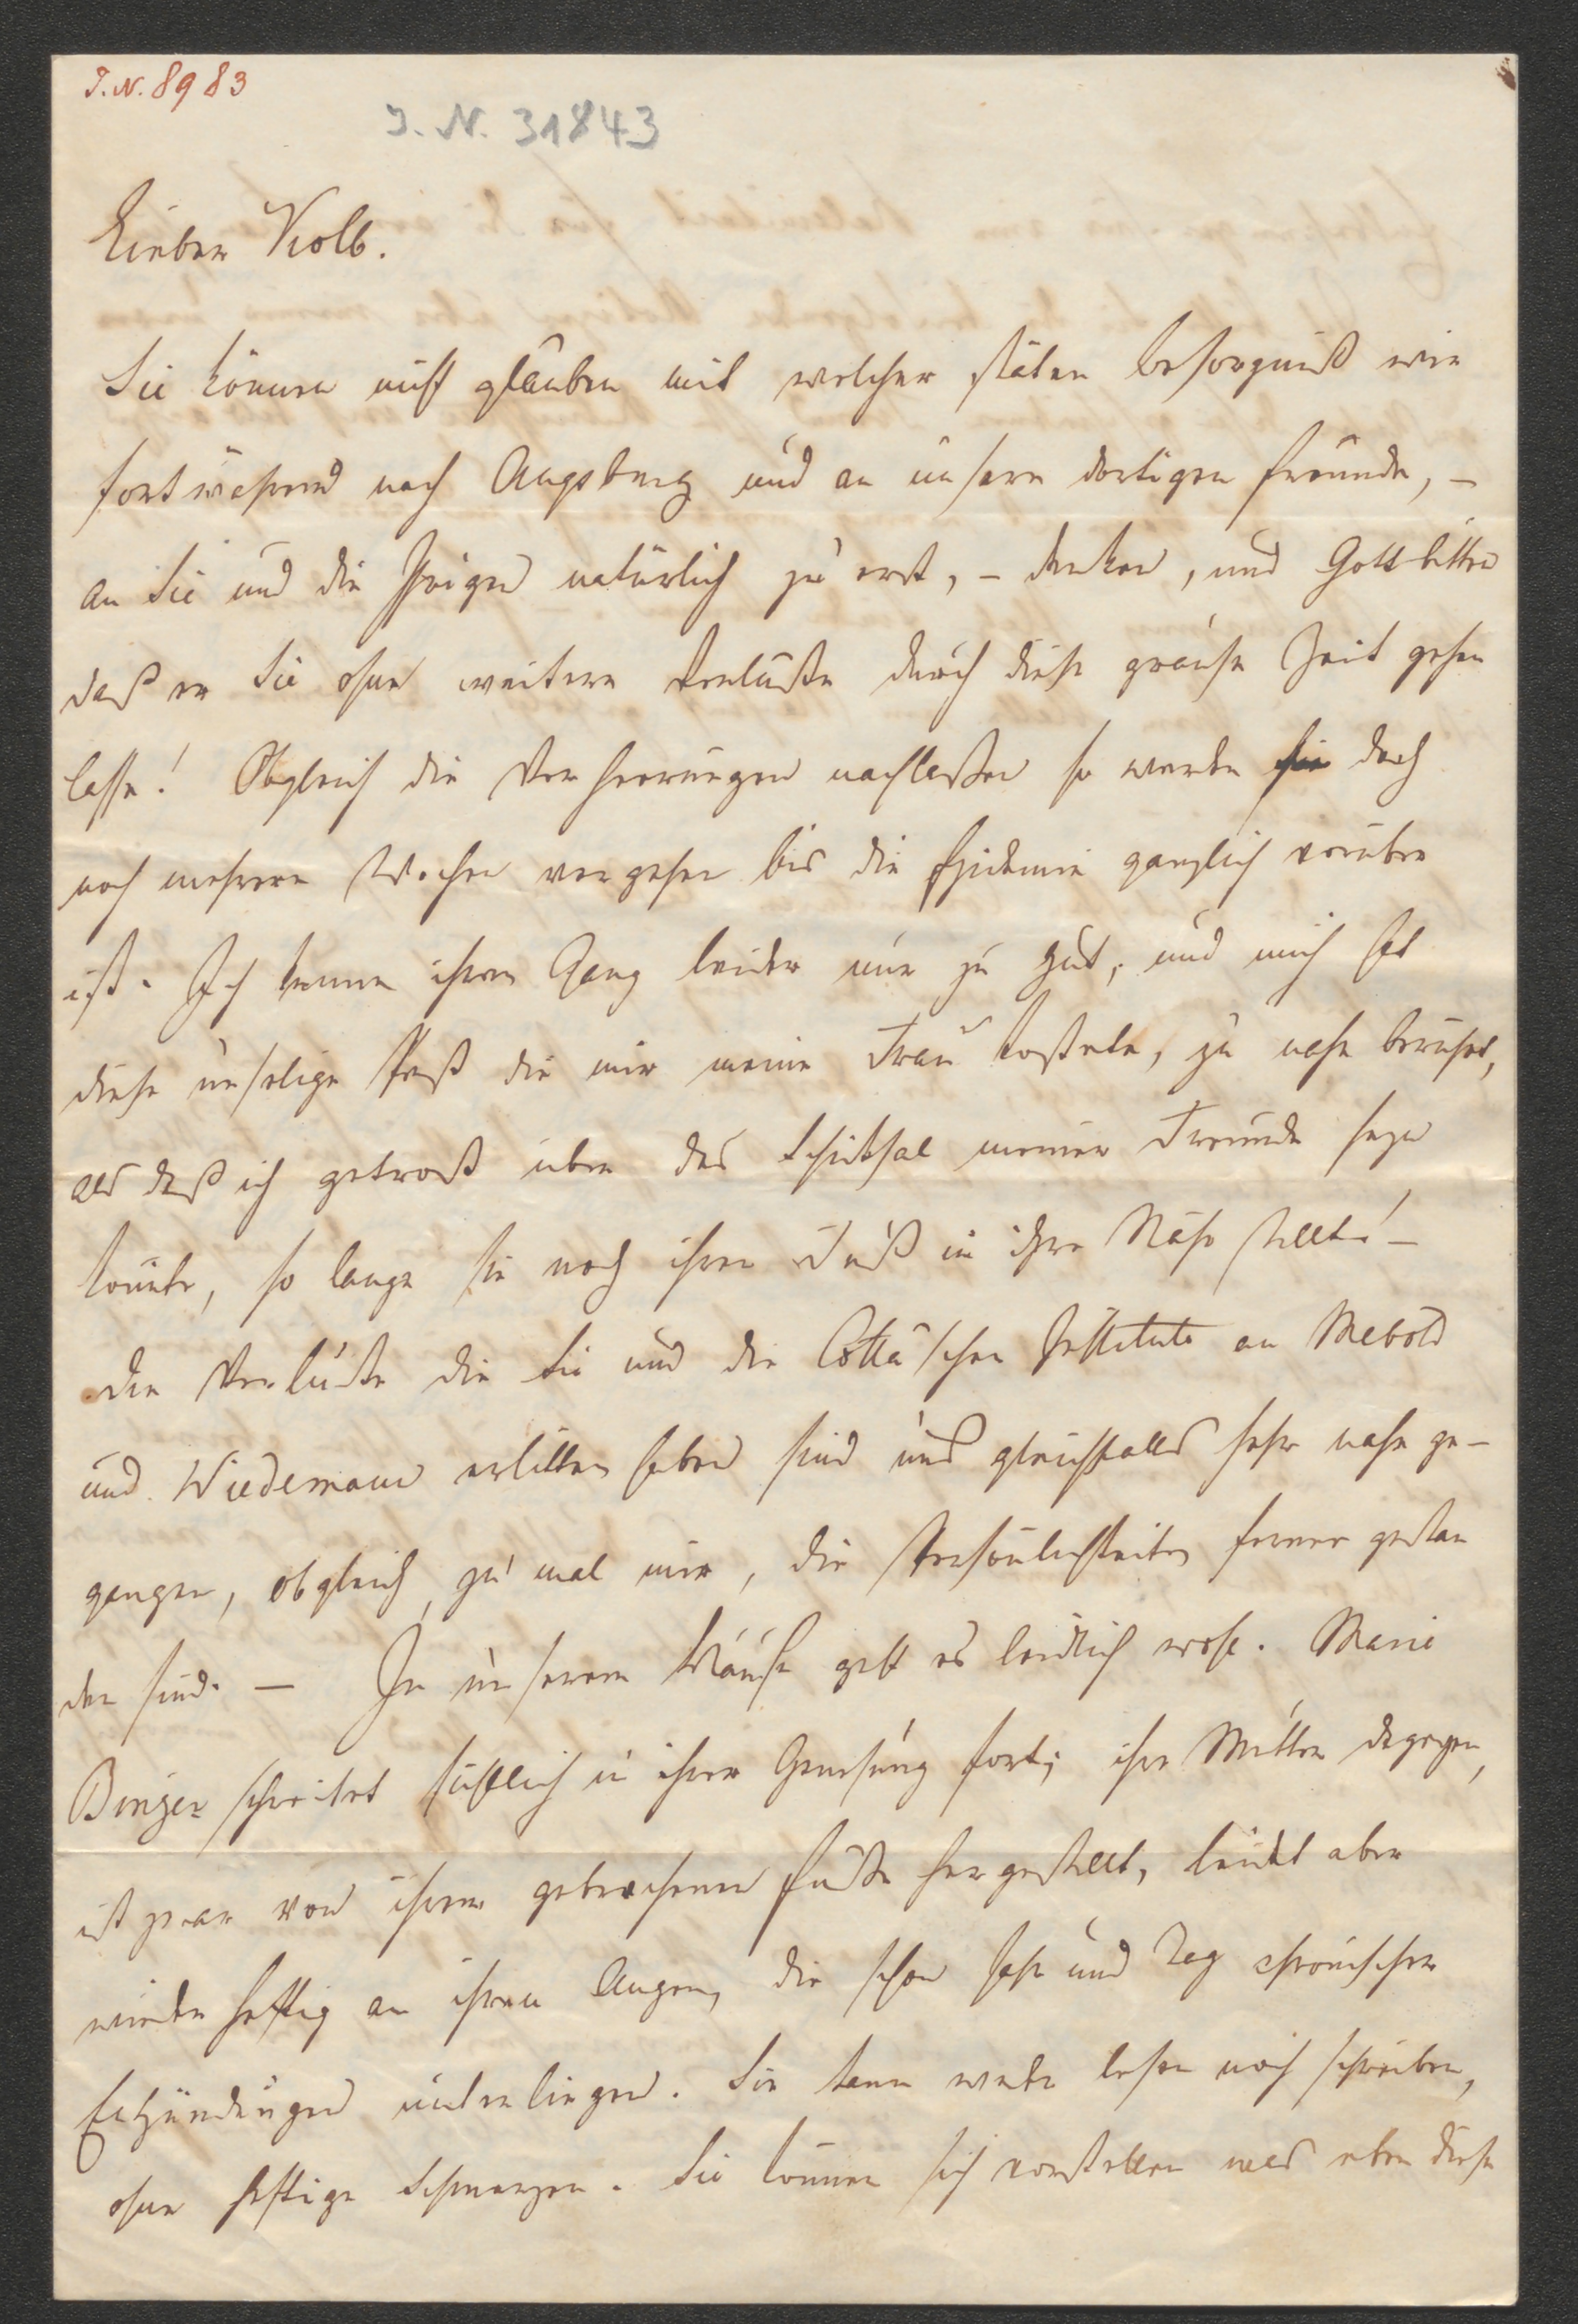 I.N. 8983
I. N. 31843
Lieber Kolb.
Sie können nicht glauben mit welcher stäten Besorgniß wir
fortwährend nach Augsburg und an unsere dortigen Freunde, –
an Sie und die Ihrigen natürlich zu erst, – denken, und Gott bitten
daß er Sie ohne weitere Verluste durch diese grause Zeit gehen
lasse! Obgleich die Verheerungen nachlaßen so werden doch
noch mehrere Wochen vergehen bis die Epidemie gänzlich vorüber
ist. Ich kenne ihren Gang leider nur zu gut, und mich hat
diese unselige Pest die mir meine Frau kostete, zu nahe berührt,
als daß ich getrost über das Schicksal meiner Freunde seyn
könnte, so lange sie noch ihren Fuß in ihre Nähe stellt! –
Die Verluste die Sie und die Cotta'schen Institute an Mebold
und Wiedemann erlitten haben sind uns gleichfalls sehr nahe ge–
gangen, obgleich, zu mal mir, die Persönlichkeiten ferner gestan
den sind. – In unserem Hause geht es leidlich wohl. Marie
Binzer schreitet sichtlich in ihrer Genesung fort; ihre Mutter dagegen,
ist zwar von ihrem gebrochenen Fuße hergestellt, leidet aber
wieder heftig an ihren Augen, die schon Jahr und Tag chronischen
Entzündungen unterliegen. Sie kann weder lesen noch schreiben,
ohne heftige Schmerzen. Sie können sich vorstellen was eben diese